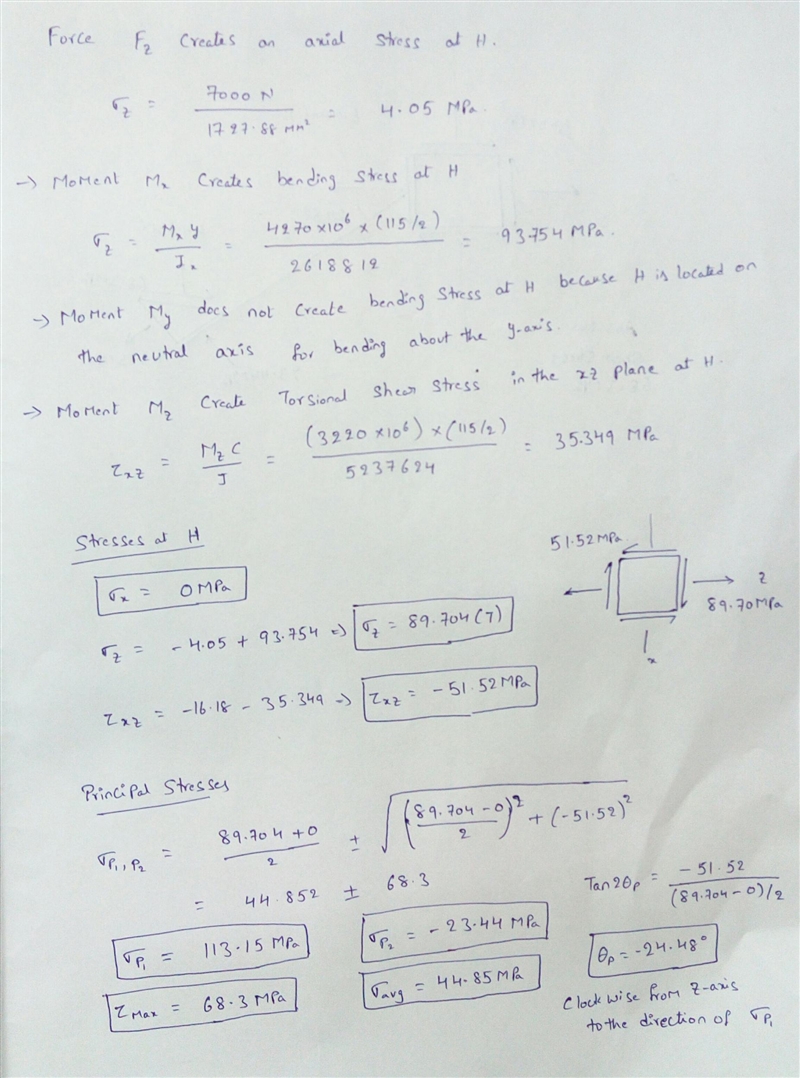 Force Fz Creates an axial Stress at H.
σz = 7000 N / 1727.88 mm² = 4.05 MPa.
→ Moment Mx Creates bending Stress at H
σz = Mx y / Ix = 4270×10⁶ × (115/2) / 2618812 = 93.754 MPa.
→ Moment My does not Create bending Stress at H because H is located on
the neutral axis for bending about the y-axis.
→ Moment Mz Create Torsional Shear Stress in the xz plane at H.
τxz = Mz C / J = (3220×10⁶) × (115/2) / 5237624 = 35.349 MPa
Stresses at H
σx = 0 MPa
σz = -4.05 + 93.754 ⇒ σz = 89.704 (T)
τxz = -16.18 - 35.349 → τxz = -51.52 MPa
51.52 MPa
z
89.70 MPa
x
Principal Stresses
σP1, P2 = 89.704 + 0 / 2 ± √((89.704 - 0 / 2)² + (-51.52)²)
= 44.852 ± 68.3
Tan 2θp = -51.52 / (89.704 - 0)/2
σP1 = 113.15 MPa
σP2 = -23.44 MPa
θp = -24.48°
τMax = 68.3 MPa
σavg = 44.85 MPa
Clockwise from z-axis
to the direction of σP1